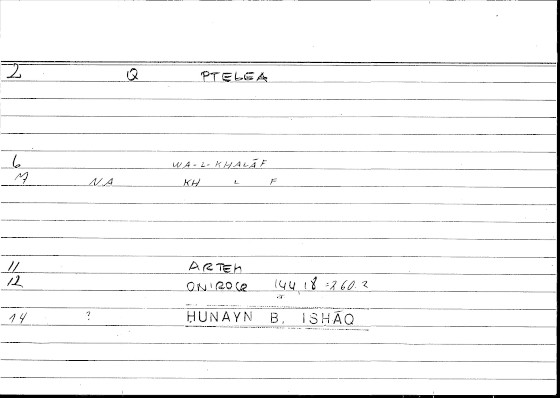 2 Q PTELEA
6 WA-L-KHALĀF
M NA KH L F
11 ARTEM
12 ONIROCR 144,18 = 260.2
14 ? HUNAYN B. ISHĀQ